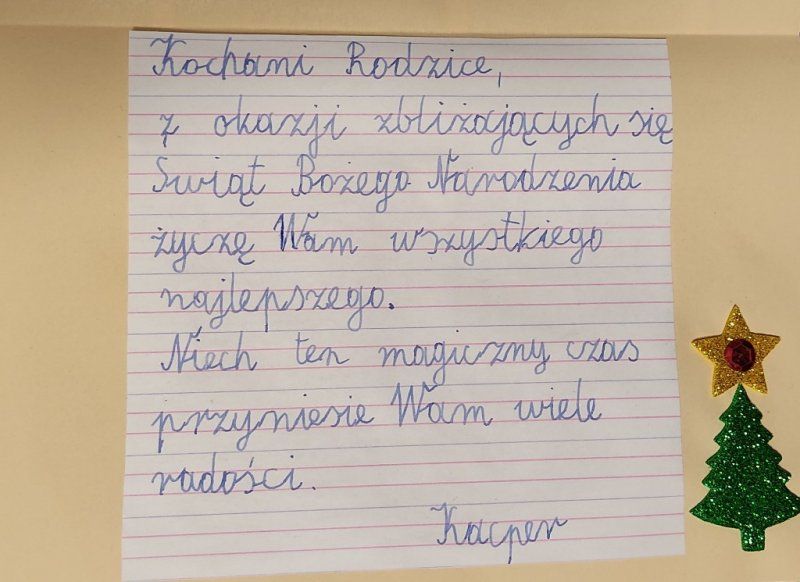 Kochani Rodzice,
z okazji zbliżających się
Świąt Bożego Narodzenia
życzę Wam wszystkiego
najlepszego.
Niech ten magiczny czas
przyniesie Wam wiele
radości.
Kacper